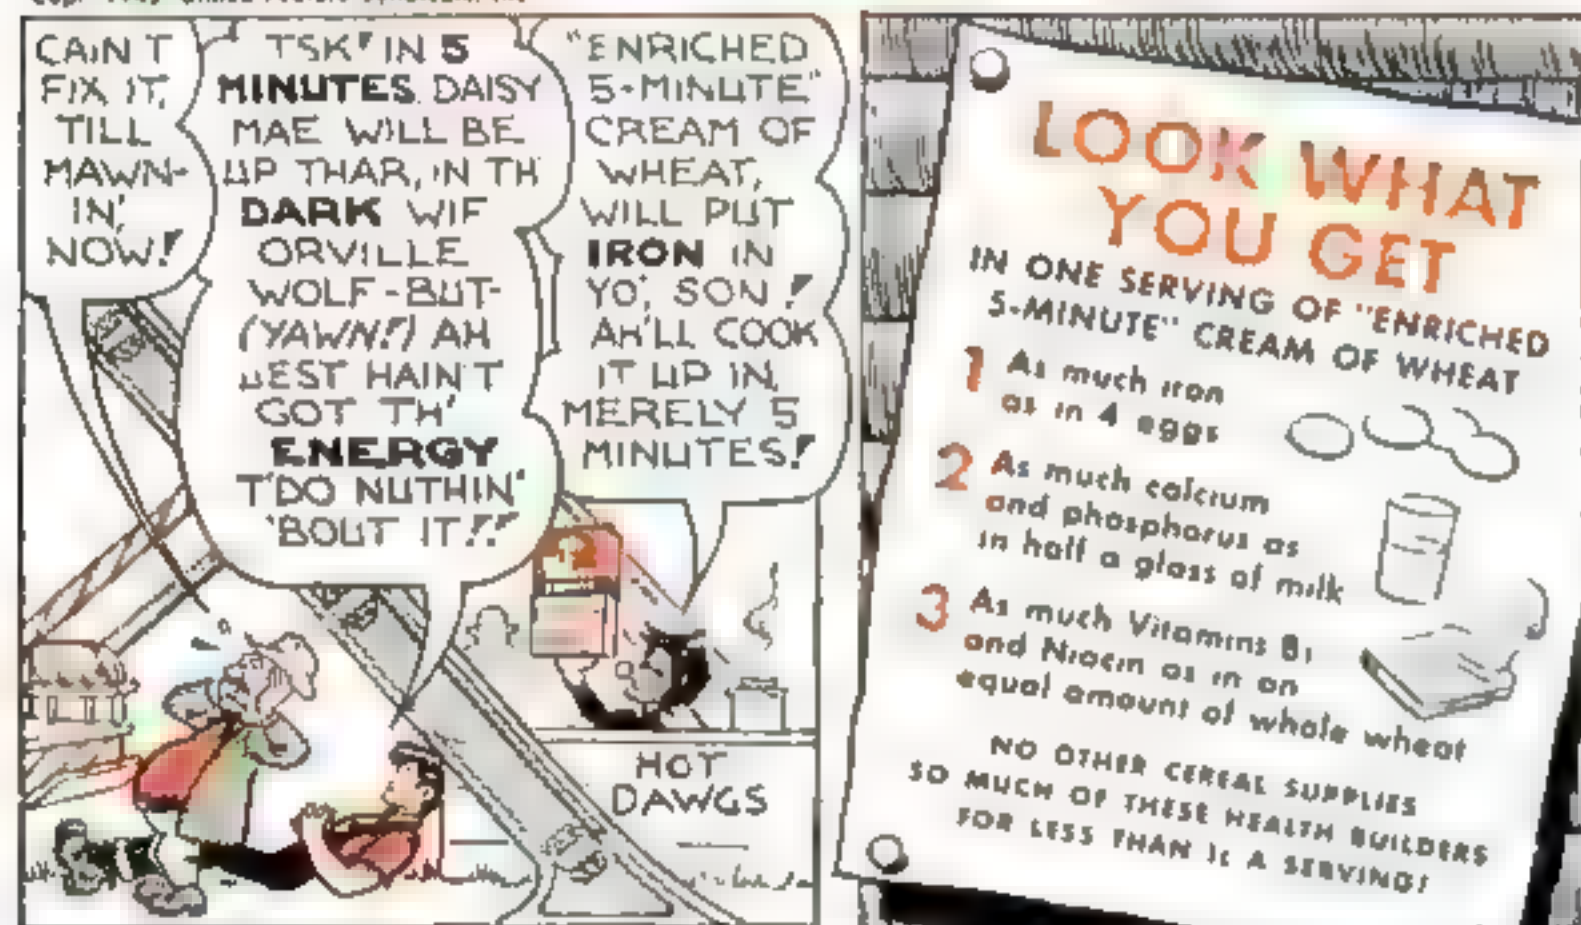 CAIN'T
FIX IT,
TILL
MAWN-
IN',
NOW!
TSK! IN 5
MINUTES DAISY
MAE WILL BE
UP THAR, IN TH'
DARK WIF
ORVILLE
WOLF-BUT-
(YAWN!!) AH
JEST HAIN'T
GOT TH'
ENERGY
T'DO NUTHIN'
'BOUT IT!!
"ENRICHED
5-MINUTE"
CREAM OF
WHEAT,
WILL PUT
IRON IN
YO', SON!
AH'LL COOK
IT UP IN
MERELY 5
MINUTES!
HOT
DAWGS
LOOK WHAT
YOU GET
IN ONE SERVING OF "ENRICHED
5-MINUTE" CREAM OF WHEAT
1 As much iron
as in 4 eggs
2 As much calcium
and phosphorus as
in half a glass of milk
3 As much Vitamins B1
and Niacin as in an
equal amount of whole wheat
NO OTHER CEREAL SUPPLIES
SO MUCH OF THESE HEALTH BUILDERS
FOR LESS THAN 1¢ A SERVING!